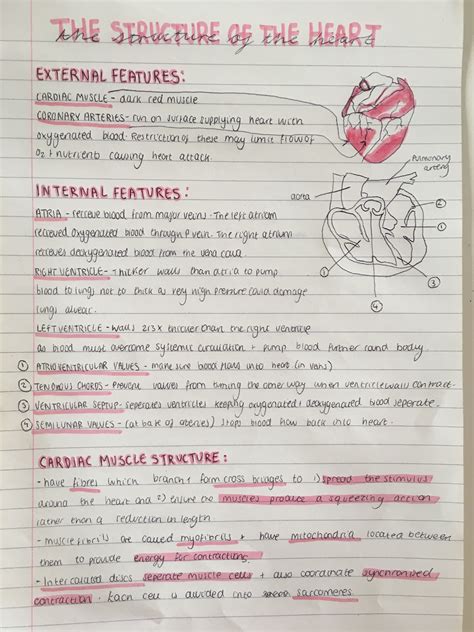 THE STRUCTURE OF THE HEART
the structure of the heart
EXTERNAL FEATURES:
CARDIAC MUSCLE - dark red muscle
CORONARY ARTERIES - run on surface supplying heart with
oxygenated blood. Restriction of these may limit flow of
O2 + nutrients causing heart attack.
Pulmonary
artery
aorta
INTERNAL FEATURES:
ATRIA - recieve blood from major veins. The left atrium
recieved oxygenated blood through P vein. The right atrium
recieves deoxygenated blood from the vena cava.
RIGHT VENTRICLE - thicker walls than atria to pump
blood to lungs not to thick as very high pressure could damage
lungs alveoli.
LEFT VENTRICLE - walls 2/3x thicker than the right ventricle
as blood must overcome systemic circulation + pump blood further round body.
① ATRIOVENTRICULAR VALVES - make sure blood flows into heart (in vans)
② TENDONOUS CHORDS - Prevent valves from turning the other way when ventricle walls contract.
③ VENTRICULAR SEPTUP - seperates ventricles keeping oxygenated + deoxygenated blood seperate.
④ SEMILUNAR VALVES - (at bak of arteries) stops blood flow back into heart.
②
①
③
④
CARDIAC MUSCLE STRUCTURE:
- have fibres which branch + form cross bridges to 1) spread the stimulus
around the heart and 2) ensure the muscles produce a squeezing action
rather than a reduction in length.
- muscle fibrils are called myofibrils + have mitochondria located between
them to provide energy for contractions.
- Intercalated discs seperate muscle cells + also coordinate synchronised
contraction. Each cell is divided into sarcomeres.